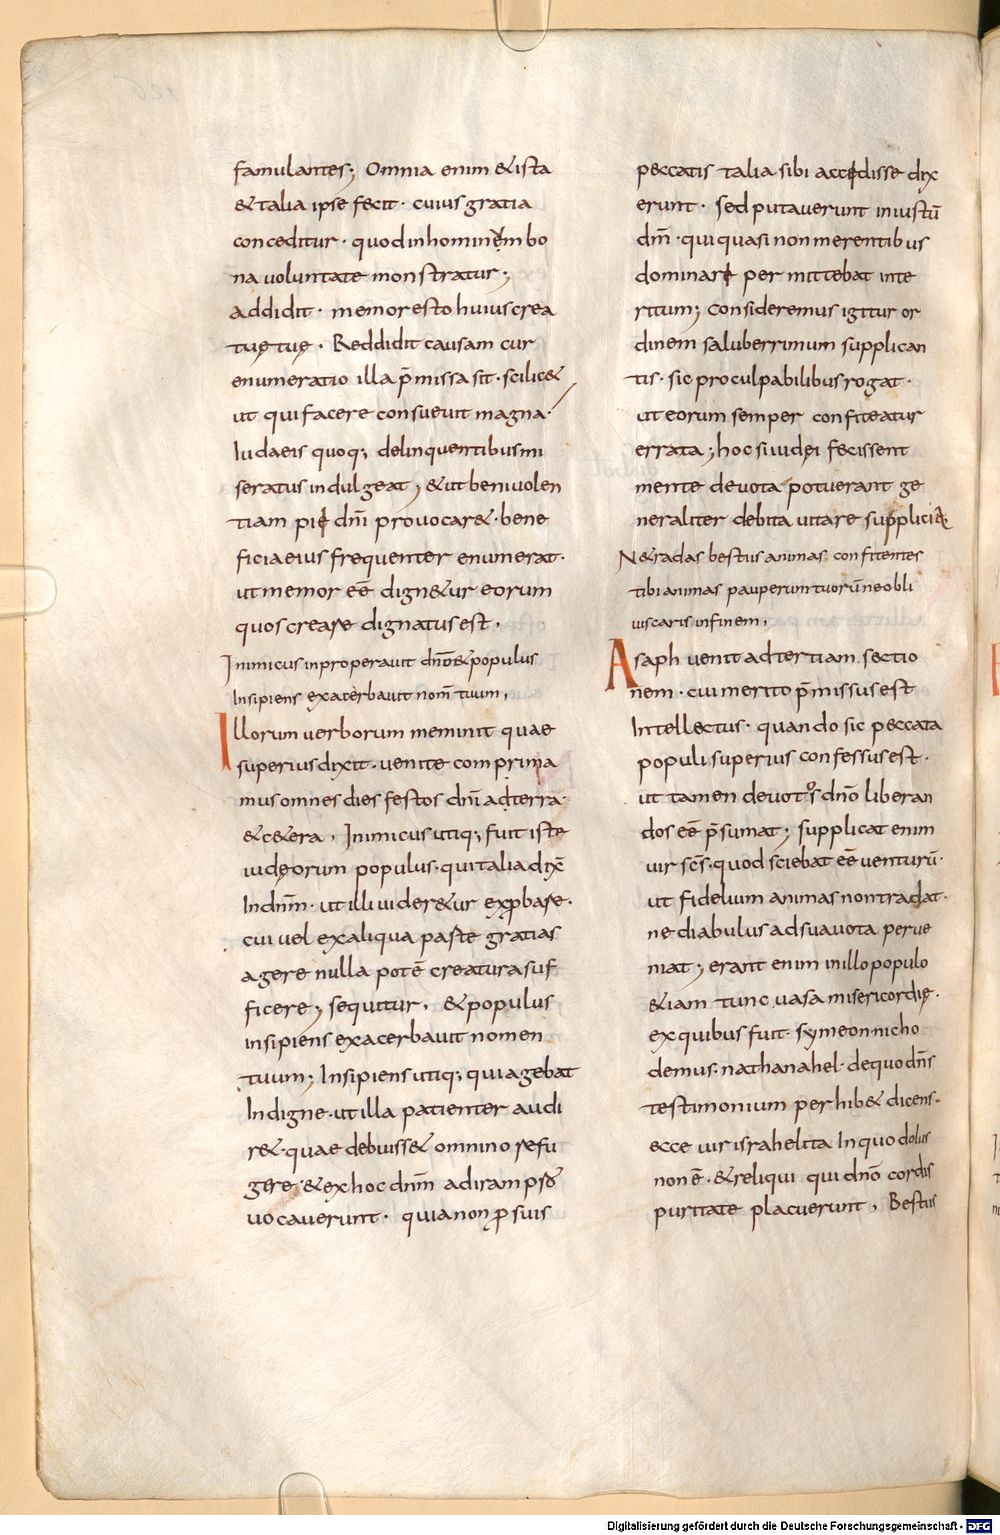 famulantes; Omnia enim & ista
& talia ipse fecit · cuius gratia
conceditur · quod in hominem bo
na uoluntate monstratur;
addidit · memor esto huius crea
turę tuę · Reddidit causam cur
enumeratio illa p̄missa sit · scilic&
ut qui facere consueuit magna ·
Iudaeis quoq; delinquentibus mi
seratus indulgeat; & ut beniuolen
tiam pii dn̄i prouocar& · bene
ficia eius frequenter enumerat ·
ut memor eē dign&ur eorum
quos creare dignatus est,
Inimicus inproperauit dn̄o & populus
Insipiens exacerbauit nom̄ tuum,
Illorum uerborum meminit quae
superius dixit · uenite comprima
mus omnes dies festos dn̄i ad terrā ·
& c&era, Inimicus utiq; fuit iste
iudęorum populus · qui talia dix̄
In dn̄m · ut illi uider&ur exp̱basse ·
cui uel ex aliqua parte gratias
agere nulla potē creatura suf
ficere; sequitur, & populus
insipiens exacerbauit nomen
tuum; Insipiens utiq; qui agebat
Indigne · ut illa patienter audi
r& · quae debuiss& omnino refu
gere · & ex hoc dn̄m ad iram
uocauerunt · quia non ꝓ suis
peccatis talia sibi accidisse dix
erunt · sed putauerunt iniustū
dm̄ · qui quasi non merentibus
dominari permittebat inte
ritum; Consideremus igitur or
dinem saluberrimum supplican
tis · sic pro culpabilibus rogat ·
ut eorum semper confiteatur
errata; hoc si iudęi fecissent
mente deuota potuerant ge
neraliter debita uitare supplicia,
Ne tradas bestiis animas confitentes
tibi animas pauperum tuorū ne obli
uiscaris in finem,
Asaph uenit ad tertiam sectio
nem · cui merito p̄missus est
Intellectus · quando sic peccata
populi superius confessus est ·
ut tamen deuotos dn̄o liberan
dos eē p̄sumat; supplicat enim
uir scs̄ · quod sciebat eē uenturū ·
ut fidelium animas non tradat ·
ne diabulus ad sua uota perue
niat; erant enim in illo populo
&iam tunc uasa misericordię ·
ex quibus fuit · symeon · nicho
demus · nathanahel · de quo dn̄s
testimonium perhib& dicens ·
ecce uir israhelita In quo dolus
non ē · & reliqui qui dn̄o cordis
puritate placuerunt, Bestiis
Digitalisierung gefördert durch die Deutsche Forschungsgemeinschaft - DFG